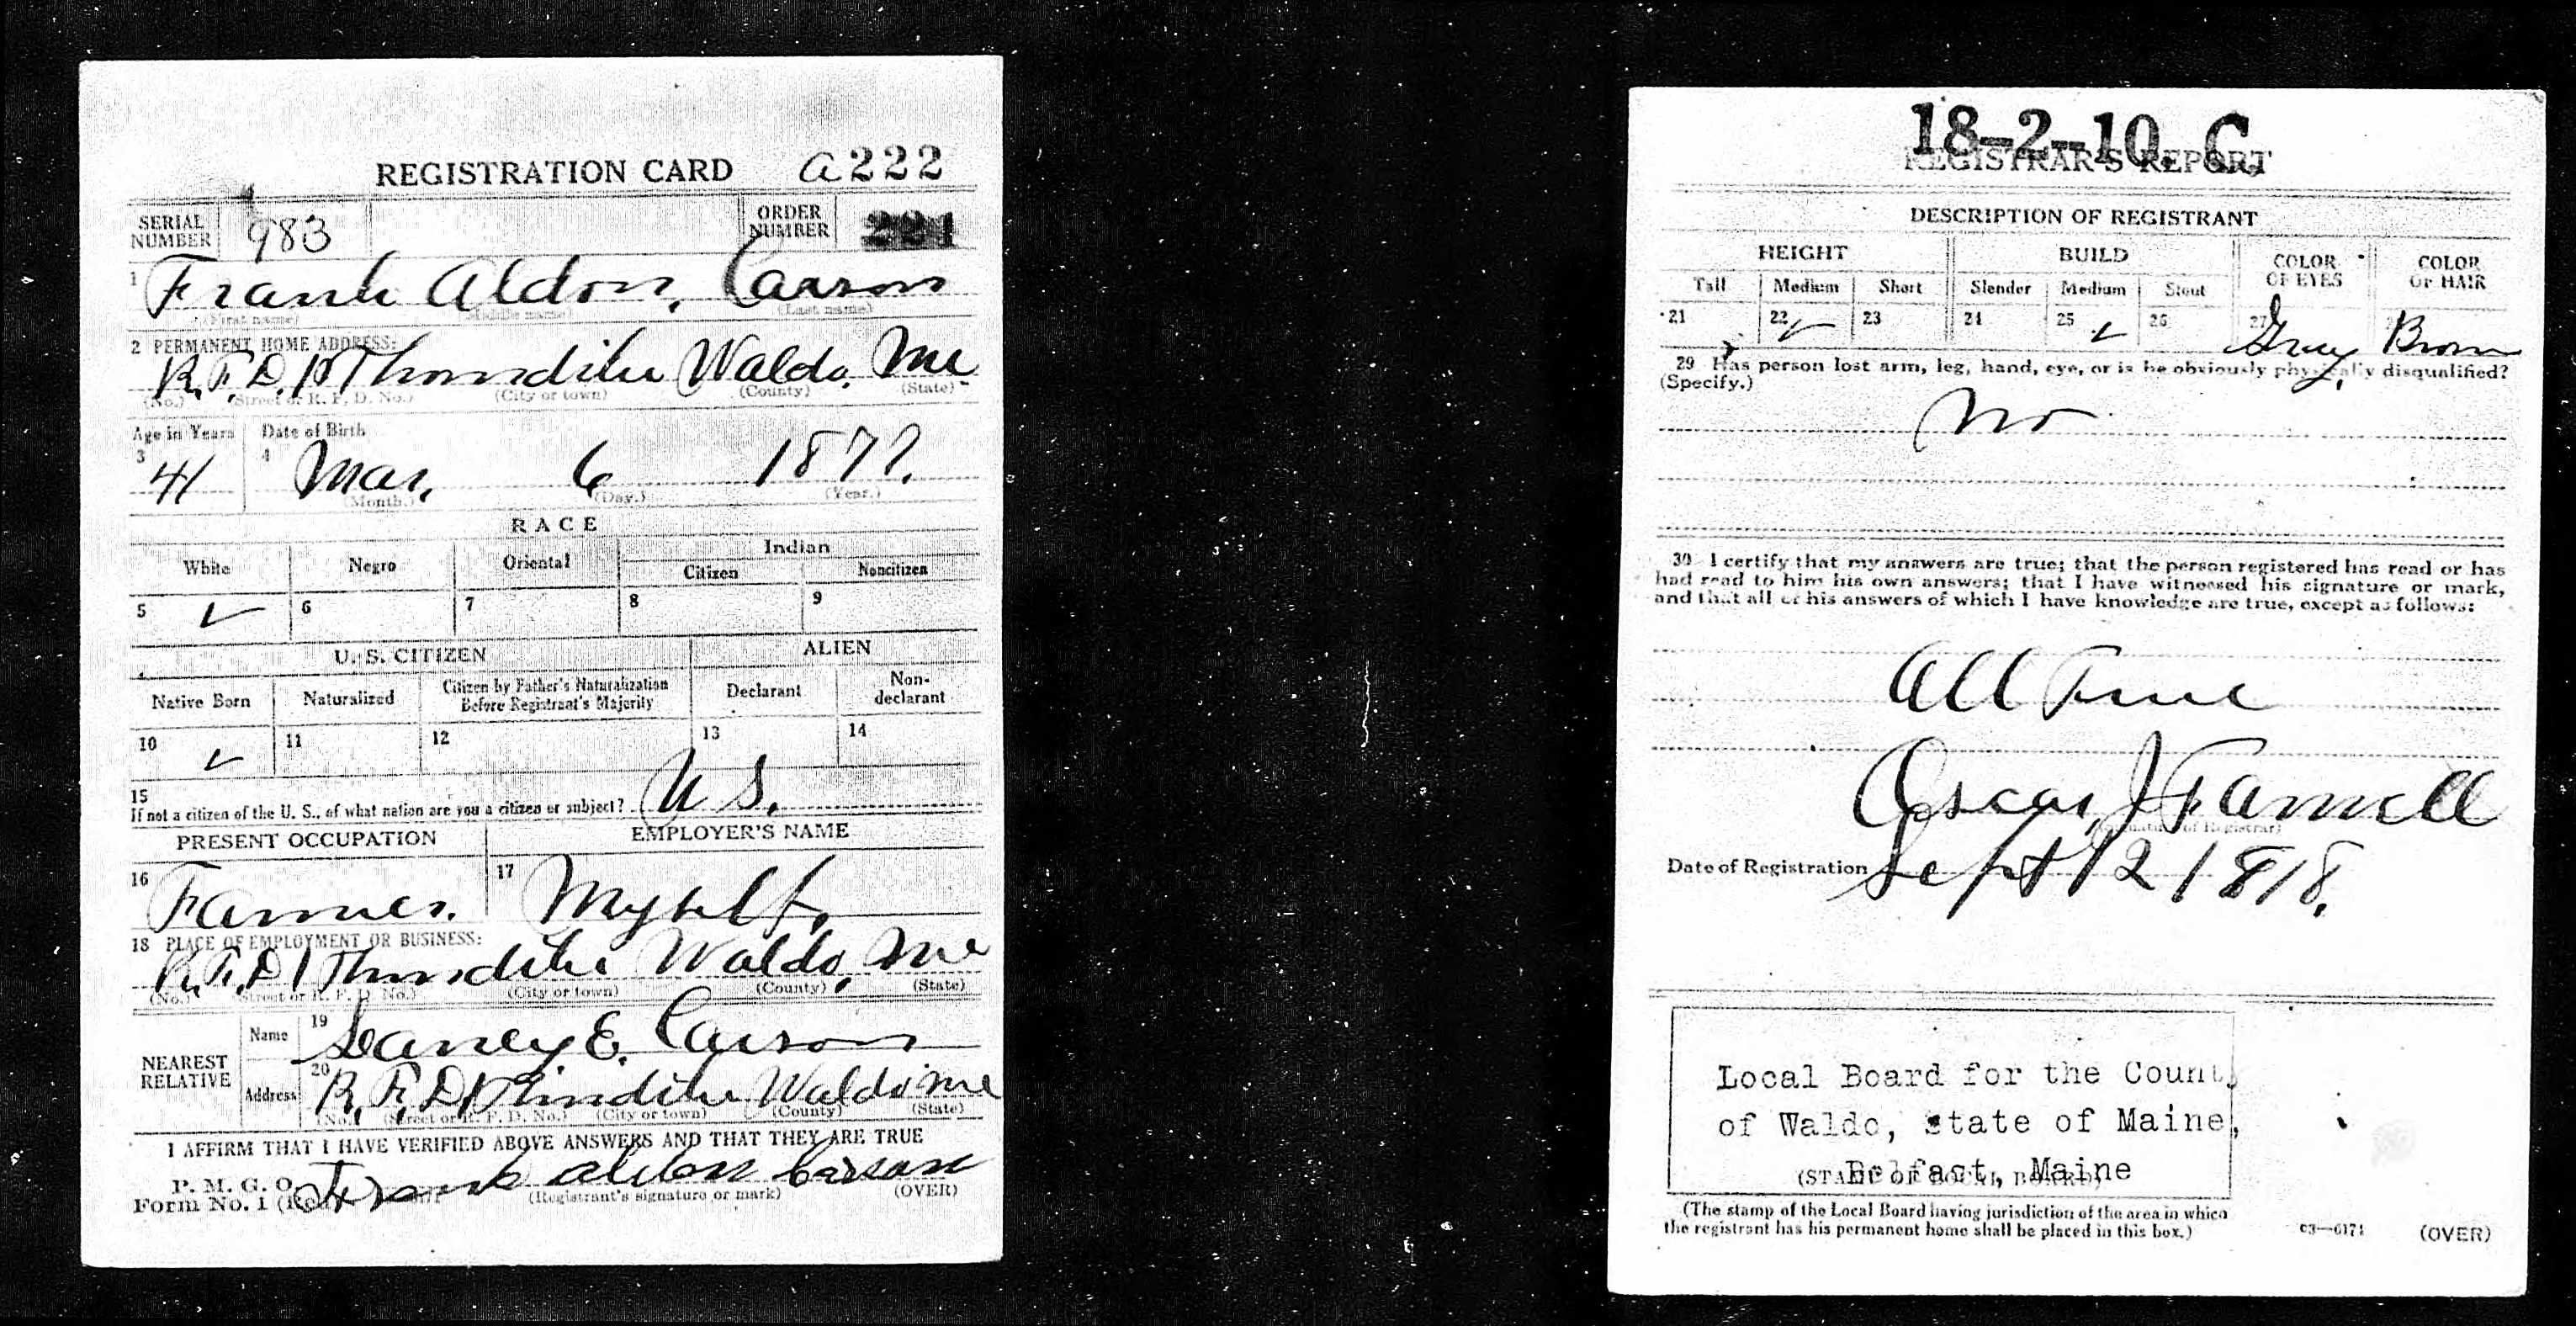 REGISTRATION CARD a222
SERIAL NUMBER 983 ORDER NUMBER 221
1 Frank Aldon, Carson
(First name) (Middle name) (Last name)
2 PERMANENT HOME ADDRESS:
R.F.D. 1 Thorndike Waldo, Me
(No.) (Street or R. F. D. No.) (City or town) (County) (State)
Age in Years Date of Birth
3 41 4 Mar, 6 1877.
(Month.) (Day.) (Year.)
RACE
White Negro Oriental Indian
Citizen Noncitizen
5 ✓ 6 7 8 9
U. S. CITIZEN ALIEN
Native Born Naturalized Citizen by Father's Naturalization Before Registrant's Majority Declarant Non-declarant
10 ✓ 11 12 13 14
15
If not a citizen of the U. S., of what nation are you a citizen or subject? U S.
PRESENT OCCUPATION EMPLOYER'S NAME
16 Farmer. 17 Myself,
18 PLACE OF EMPLOYMENT OR BUSINESS:
R.F.D 1 Thorndike Waldo, Me
(No.) (Street or R. F. D. No.) (City or town) (County) (State)
NEAREST RELATIVE
Name 19 E. Carson
Address 20 R.F.D 1 Thorndike Waldo Me
(No.) (Street or R. F. D. No.) (City or town) (County) (State)
I AFFIRM THAT I HAVE VERIFIED ABOVE ANSWERS AND THAT THEY ARE TRUE
P. M. G. O.
Form No. 1 Frank alden Carson
(Registrant's signature or mark) (OVER)
18-2-10. C
REGISTRAR'S REPORT
DESCRIPTION OF REGISTRANT
HEIGHT BUILD COLOR OF EYES COLOR OF HAIR
Tall Medium Short Slender Medium Stout
21 22 ✓ 23 24 25 ✓ 26 27 Grey, Brown
29 Has person lost arm, leg, hand, eye, or is he obviously physically disqualified?
(Specify.)
No
30 I certify that my answers are true; that the person registered has read or has
had read to him his own answers; that I have witnessed his signature or mark,
and that all of his answers of which I have knowledge are true, except as follows:
All True
Oscar J Farwell
(Signature of Registrar)
Date of Registration Sept 12 1818.
Local Board for the County
of Waldo, state of Maine,
Belfast, Maine
(STAMP OF LOCAL BOARD)
(The stamp of the Local Board having jurisdiction of the area in which
the registrant has his permanent home shall be placed in this box.)
03—6171 (OVER)